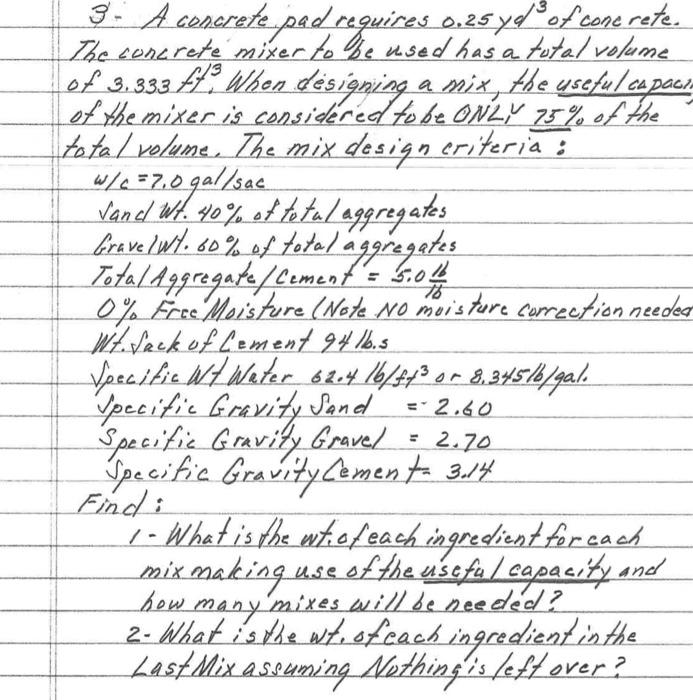 3- A concrete pad requires 0.25 yd³ of concrete.
The concrete mixer to be used has a total volume
of 3.333 ft³. When designing a mix, the useful capaci
of the mixer is considered to be ONLY 75% of the
total volume. The mix design criteria :
w/c = 7.0 gal/sac
Sand Wt. 40% of total aggregates
Gravel Wt. 60% of total aggregates
Total Aggregate/Cement = 5.0 lb/lb
0% Free Moisture (Note NO moisture correction needed
Wt. Sack of Cement 94 lb.s
Specific Wt Water 62.4 lb/ft³ or 8.345 lb/gal.
Specific Gravity Sand = 2.60
Specific Gravity Gravel = 2.70
Specific Gravity Cement = 3.14
Find :
1 - What is the wt. of each ingredient for each
mix making use of the useful capacity and
how many mixes will be needed?
2- What is the wt. of each ingredient in the
Last Mix assuming Nothing is left over?